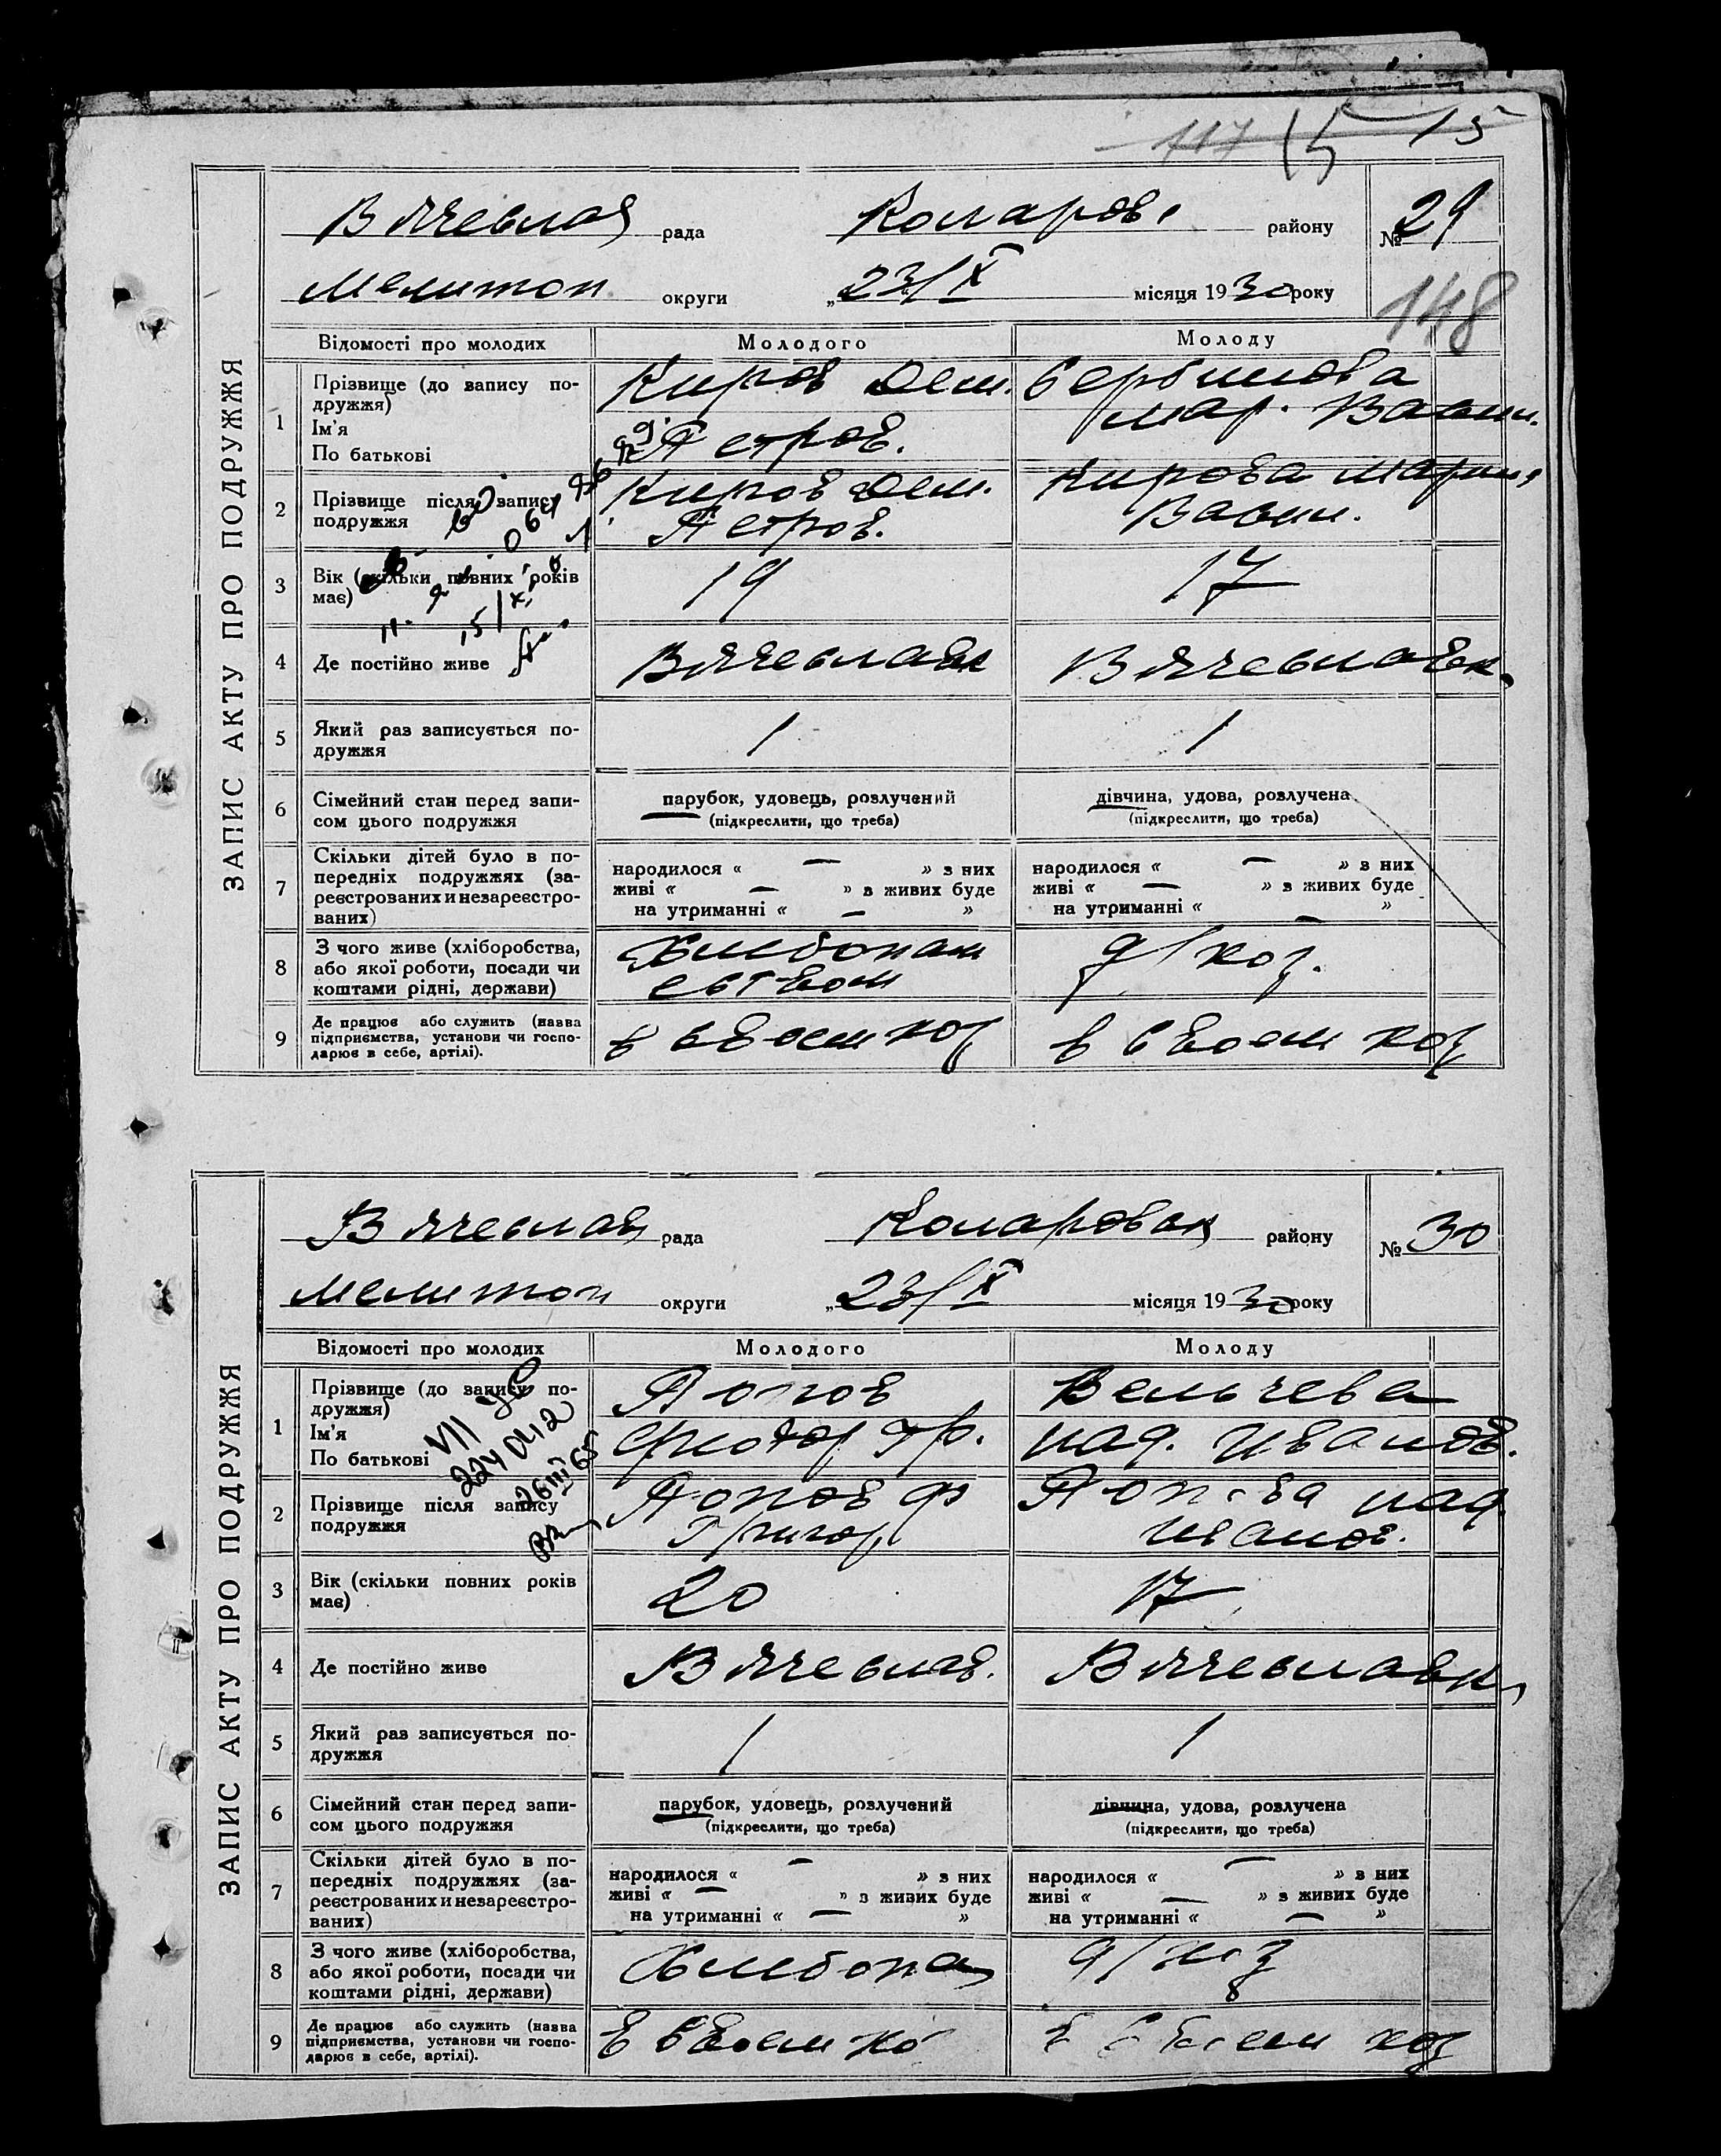 117 15 15
ЗАПИС АКТУ ПРО ПОДРУЖЖЯ
Вячеслав рада Комаров. району № 29
Мелитоп округи „23/X місяця 1930 року
148
Відомості про молодих Молодого Молоду
1 Прізвище (до запису по-
дружжя)
Ім'я
По батькові
Киров Дем.
Петров.
Сербинова
Мар. Васил.
2 Прізвище після запису
подружжя
Киров Дем.
Петров.
Кирова Мария
Васил.
3 Вік (скільки повних років
має)
19 17
4 Де постійно живе Вячеславк Вячеславк.
5 Який раз записується по-
дружжя
1 1
6 Сімейний стан перед запи-
сом цього подружжя
парубок, удовець, розлучений
(підкреслити, що треба)
дівчина, удова, розлучена
(підкреслити, що треба)
7 Скільки дітей було в по-
передніх подружжях (за-
реєстрованих и незареєстро-
ваних)
народилося « — » з них
живі « — » з живих буде
на утриманні « — »
народилося « — » з них
живі « — » з живих буде
на утриманні « — »
8 З чого живе (хліборобства,
або якої роботи, посади чи
коштами рідні, держави)
Хлибопаш
еством
д/хоз.
9 Де працює або служить (назва
підприємства, установи чи госпо-
дарює в себе, артілі).
в своем хоз в своем хоз
ЗАПИС АКТУ ПРО ПОДРУЖЖЯ
Вячеслав рада Комаровск району № 30
Мелитоп округи „23/X місяця 1930 року
Відомості про молодих Молодого Молоду
1 Прізвище (до запису по-
дружжя)
Ім'я
По батькові
VII
26 III 65
Попов
Феодор Гр.
Вельчева
над. Иванов.
2 Прізвище після запису
подружжя
Попов Ф
Григор
Попова над.
Иванов.
3 Вік (скільки повних років
має)
20 17
4 Де постійно живе Вячеслав. Вячеславк
5 Який раз записується по-
дружжя
1 1
6 Сімейний стан перед запи-
сом цього подружжя
парубок, удовець, розлучений
(підкреслити, що треба)
дівчина, удова, розлучена
(підкреслити, що треба)
7 Скільки дітей було в по-
передніх подружжях (за-
реєстрованих и незареєстро-
ваних)
народилося « — » з них
живі « — » з живих буде
на утриманні « — »
народилося « — » з них
живі « — » з живих буде
на утриманні « — »
8 З чого живе (хліборобства,
або якої роботи, посади чи
коштами рідні, держави)
Хлибопа д/хоз
9 Де працює або служить (назва
підприємства, установи чи госпо-
дарює в себе, артілі).
в своем хо в своем хоз